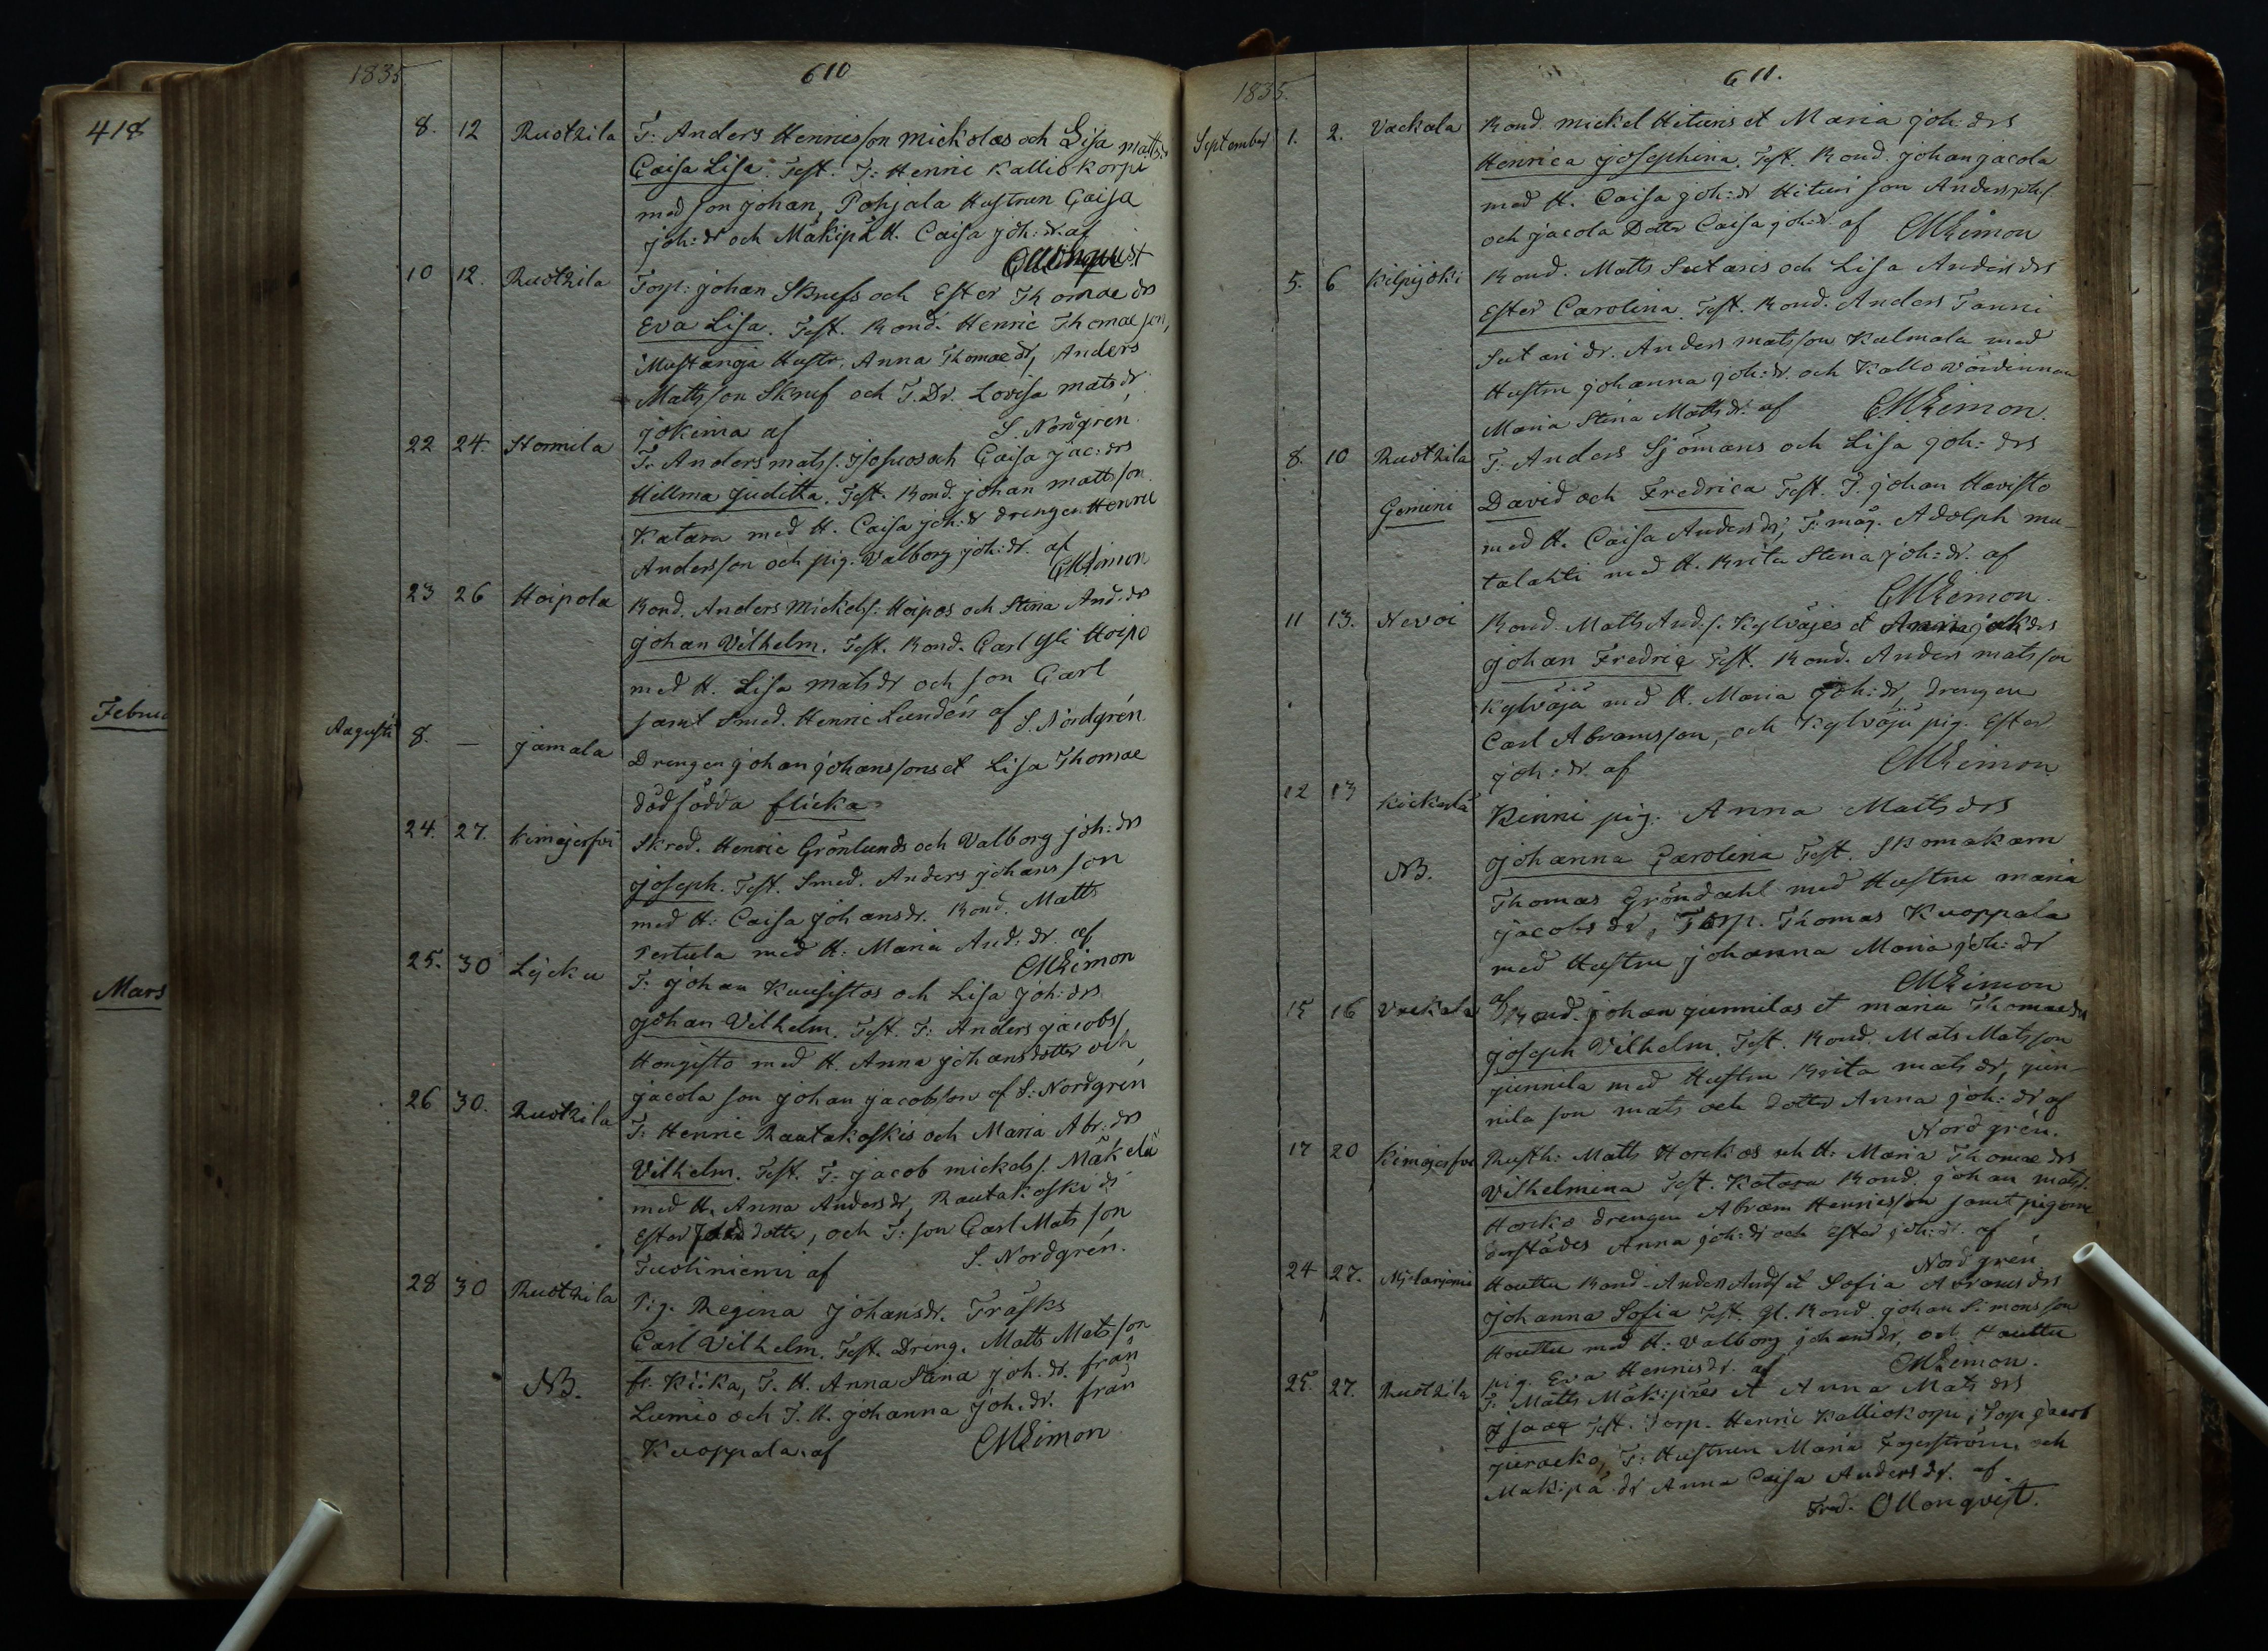 418
Februa
Mars
1835
610
8. 12 Ruotzila T: Anders Henricsson Mickolas och Lisa Mattsdr
Caisa Lisa. Test. T: Henric Kalliokorpi
med son Johan, Pohjala Hustrun Caisa
Joh: dr och Mäkipä H. Caisa Joh: dr. af
10 12. Ruotzila Torp: Johan Skrufs och Ester Thomae drs
Eva Lisa. Test. Bond. Henric Thomae son,
Mustanja Hustr. Anna Thomae dr, Anders
Mattsson Skruf och T. Dr. Lovisa Mats dr
Jokima af S. Nordgrén.
22 24. Hormila T. Anders Mats s. och Caisa Jac: drs
Hillma Juditta. Test. Bond. Johan Mattsson
Katara med H. Caisa Joh: dr drengen Henric
Andersson och pig. Valborg Joh: dr. af
CMLimon
23 26 Hoipola Bond. Anders Mickels s: Hoipos och Stina And: drs
Johan Vilhelm. Test. Bond. Carl Yli Hoipo
med H. Lisa Mats dr och son Carl
samt Smed. Henric Lundén af S. Nordgrén
Augusti 8. — Jamala Drengen Johan Johanssons et Lisa Thomae
dödfödda flicka
24. 27. Kimajerfvi Skred. Henric Grönlunds och Valborg Joh: drs
Joseph. Test. Smed. Anders Johansson
med H: Caisa Johansdr. Bond. Matts
Pertula med H: Maria And: dr. af
CMLimon
25. 30 Lycku T: Johan Kuusistos och Lisa Joh: drs
Johan Vilhelm. Test. T: Anders Jacobs s
Hongisto med H. Anna Johansdotter och
Jacola son Johan Jacobsson af S: Nordgrén
26 30. Ruotzila T: Henric Rautakoskis och Maria Abr: drs
Vilhelm. Test. T: Jacob Mickels s. Mäkelä
med H. Anna Anders dr, Rautakoski dr
Ester dotter, och T: son Carl Matsson
Tuoliniemi af S. Nordgrén.
28 30 Ruotzila Pig. Regina Johansdr. Träsks
Carl Vilhelm. Test. Dreng. Matts Matsson
NB. fr. Kiika, T. H. Anna Stina Joh. dr. från
Lumio och T. H. Johanna Joh. dr. från
Kuoppala af CMLimon
1835.
611.
September 1. 2. Vackala Bond. Mickel Hituris et Maria Joh: drs
Henrica Josephina. Test. Bond. Johan Jacola
med H. Caisa Joh: dr Hituri son Anders
och Jacola Dotter Caisa Joh: dr. af CMLimon
5. 6 Kilpijoki Bond. Matts Sutaris och Lisa Anders drs
Ester Carolina. Test. Bond. Anders Tanni
Sutari dr. Anders Matsson Kulmala med
Hustru Johanna Joh: dr. och Kallo värdinnan
Maria Stina Matts dr. af CMLimon.
8. 10 Ruotzila T: Anders Sjömans och Lisa Joh: drs
Gemini David och Fredrica Test. T. Johan Havisto
med H. Caisa Anders dr, T: måg. Adolph mu-
talahti med H. Brita Stena Joh: dr. af
CMLimon.
11 13. Nevoi Bond. Matts And. s. Kylväjes et drs
Johan Fredric Test. Bond. Anders Matsson
Kylväjä med H. Maria Joh: dr, drengen
Carl Abramsson, och Kylväjä pig. Ester
Joh: dr. af CMLimon
12 13 Kinni pig. Anna Matts drs
NB. Johanna Carolina Test. Skomakarn
Thomas Gröndahl med Hustru Maria
Jacobs dr, Torp. Thomas Kuoppala
med Hustru Johanna Maria Joh: dr
af CMLimon
15 16 Vackala Bond. Johan Junnilas et Maria Thomae drs
Joseph Vilhelm. Test. Bond. Mats Matsson
Junnila med Hustru Brita Mats dr, Jun-
nila son Mats och dotter Anna Joh: dr af
Nordgrén.
17 20 Kimajerfvi Rusth: Matts Horckos och H: Maria Thomae drs
Vilhelmina Test. Katara Bond. Johan Mats s.
Horcko drengen Abram Henricsson samt pigorne
derstädes Anna Joh: dr och Ester Joh: dr. af
Nordgrén
24 27. Houttu Bond. Anders Ands s et Sofia Abrams drs
Johanna Sofia Test. Gl. Bond. Johan Simonsson
Houttu med H: Valborg Johansdr, och Houttu
pig. Eva Henricsdr. af CMLimon.
25. 27. Ruotzila T. Matts Mäkipäes et Anna Mats drs
Isaac Test. Torp. Henric Kalliokorpi, Torp Jacob
T: Hustrun Maria Fagerström, och
Makipä dr Anna Caisa Anders dr. af
Fred. Ollonqvist.